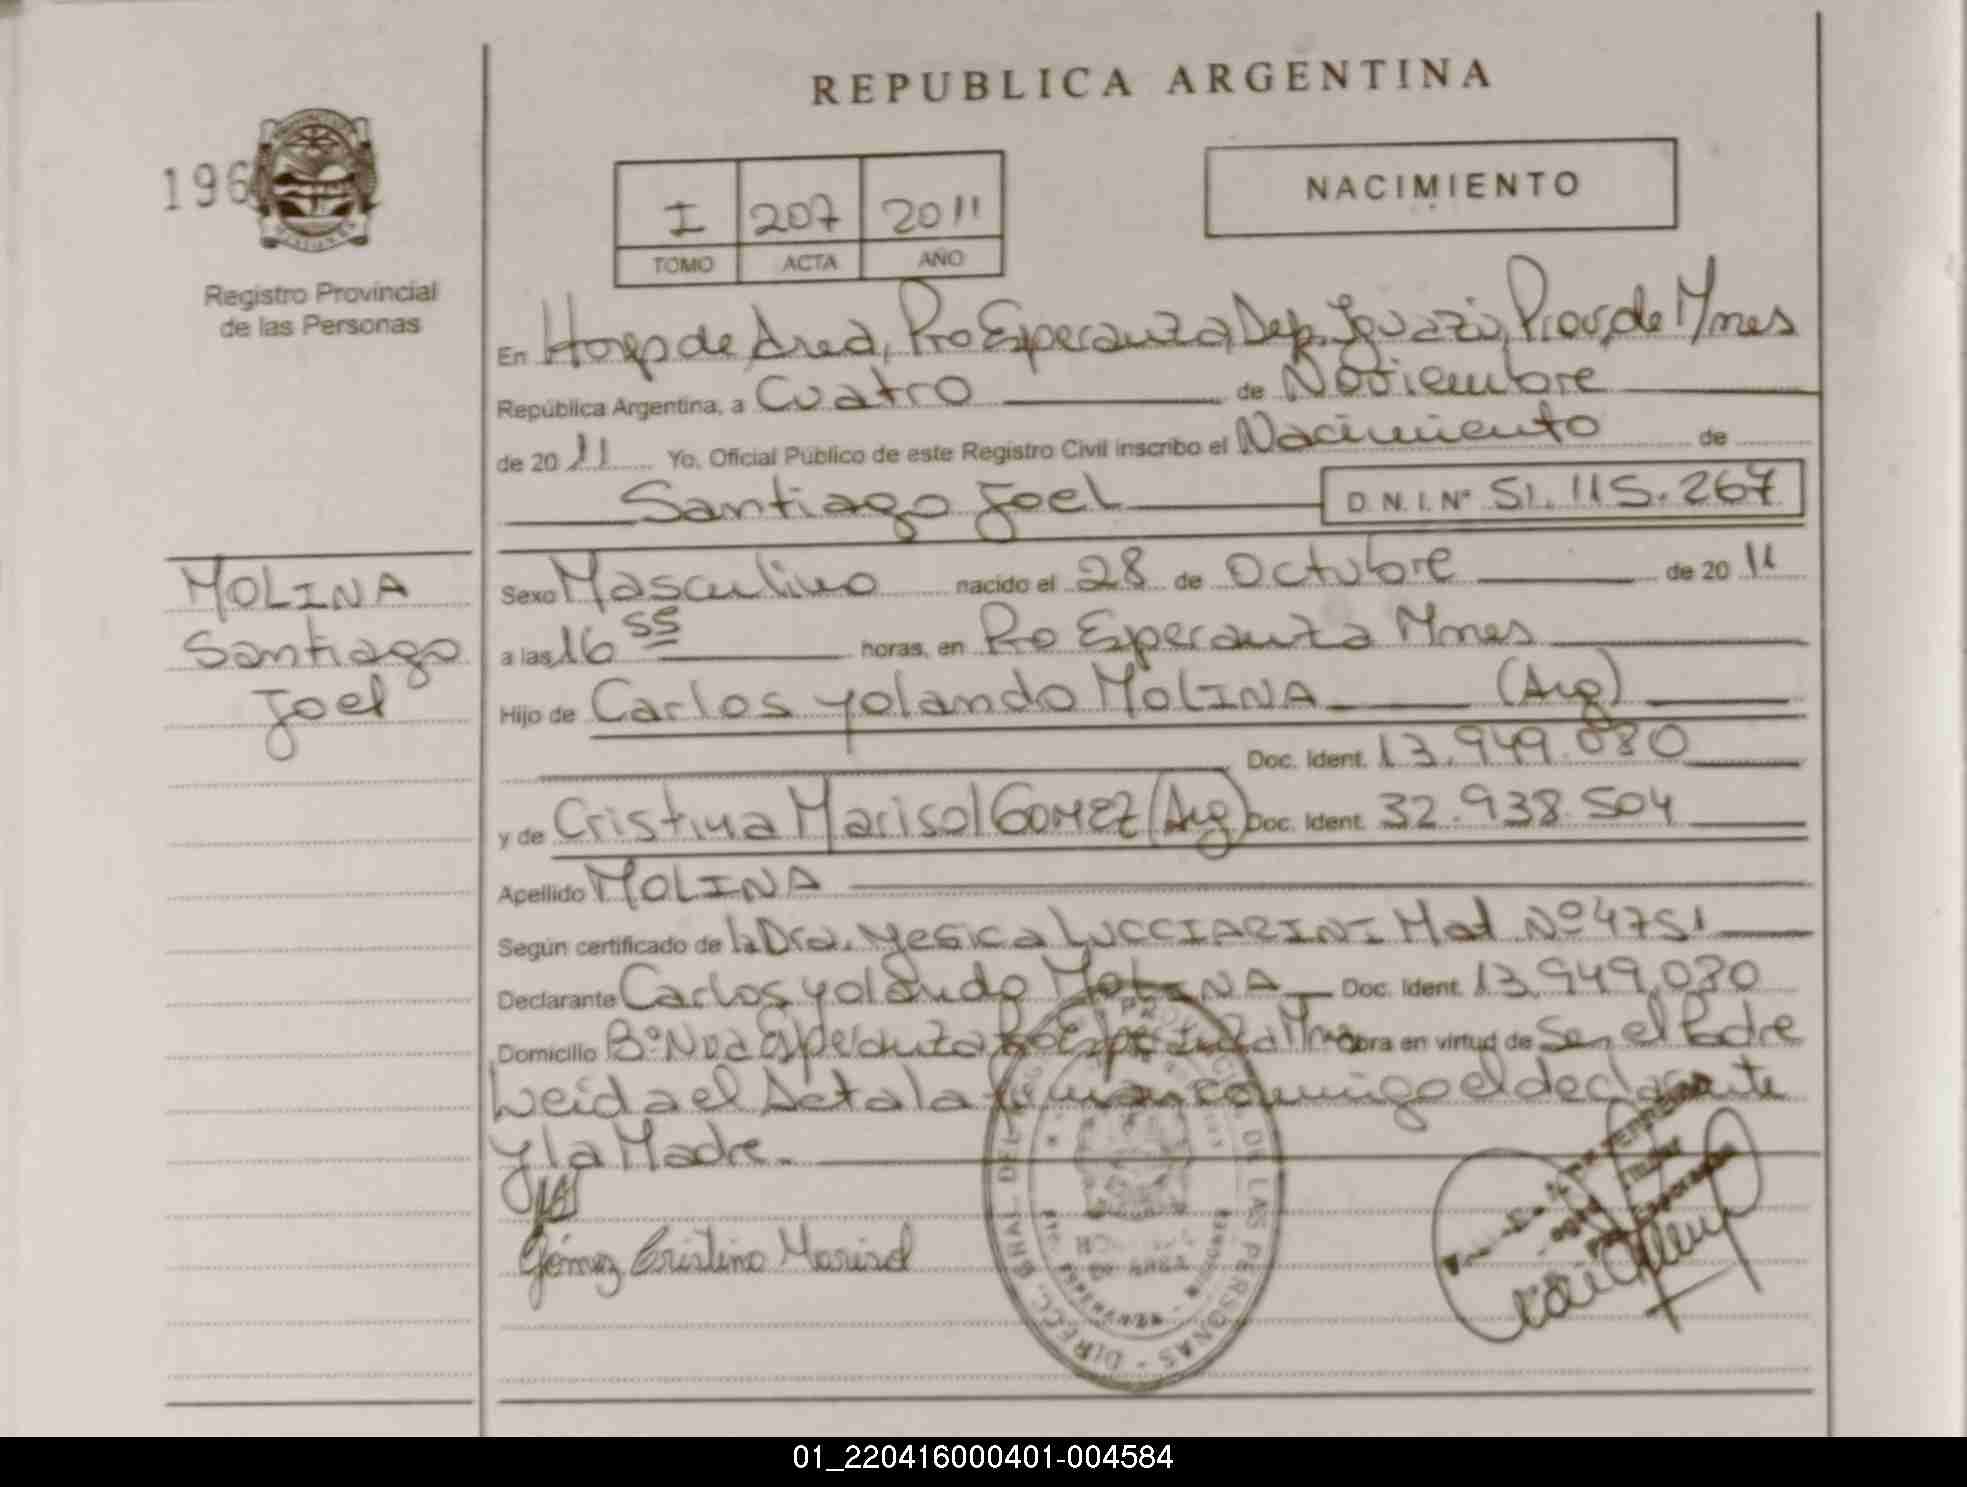 REPUBLICA ARGENTINA
196
Registro Provincial
de las Personas
I 207 2011
TOMO ACTA AÑO
NACIMIENTO
En Hosp de Area, Pto Esperanza, Dep. Iguazú, Prov, de Mnes
República Argentina, a Cuatro de Noviembre
de 2011 Yo, Oficial Público de este Registro Civil inscribo el Nacimiento de
Santiago Joel D.N.I. Nº 51.115.267
MOLINA
Santiago
Joel
Sexo Masculino nacido el 28 de Octubre de 2011
a las 16 55 horas, en Pto Esperanza Mnes
Hijo de Carlos Yolando MOLINA (Arg)
Doc. Ident. 13.949.080
y de Cristina Marisol GOMEZ (Arg) Doc. Ident. 32.938.504
Apellido MOLINA
Según certificado de la Dra. Yesica LUCCIARINI Mat Nº 4751
Declarante Carlos Yolando MOLINA Doc. Ident. 13.949.080
Domicilio Bº Nva Esperanza Pto Esperanza Mnes Obra en virtud de Ser el Padre
Leida el Acta la firman conmigo el declarante
y la Madre.
Gómez Cristina Marisol
DIRECC. GRAL. DEL DE LAS PERSONAS
01_220416000401-004584